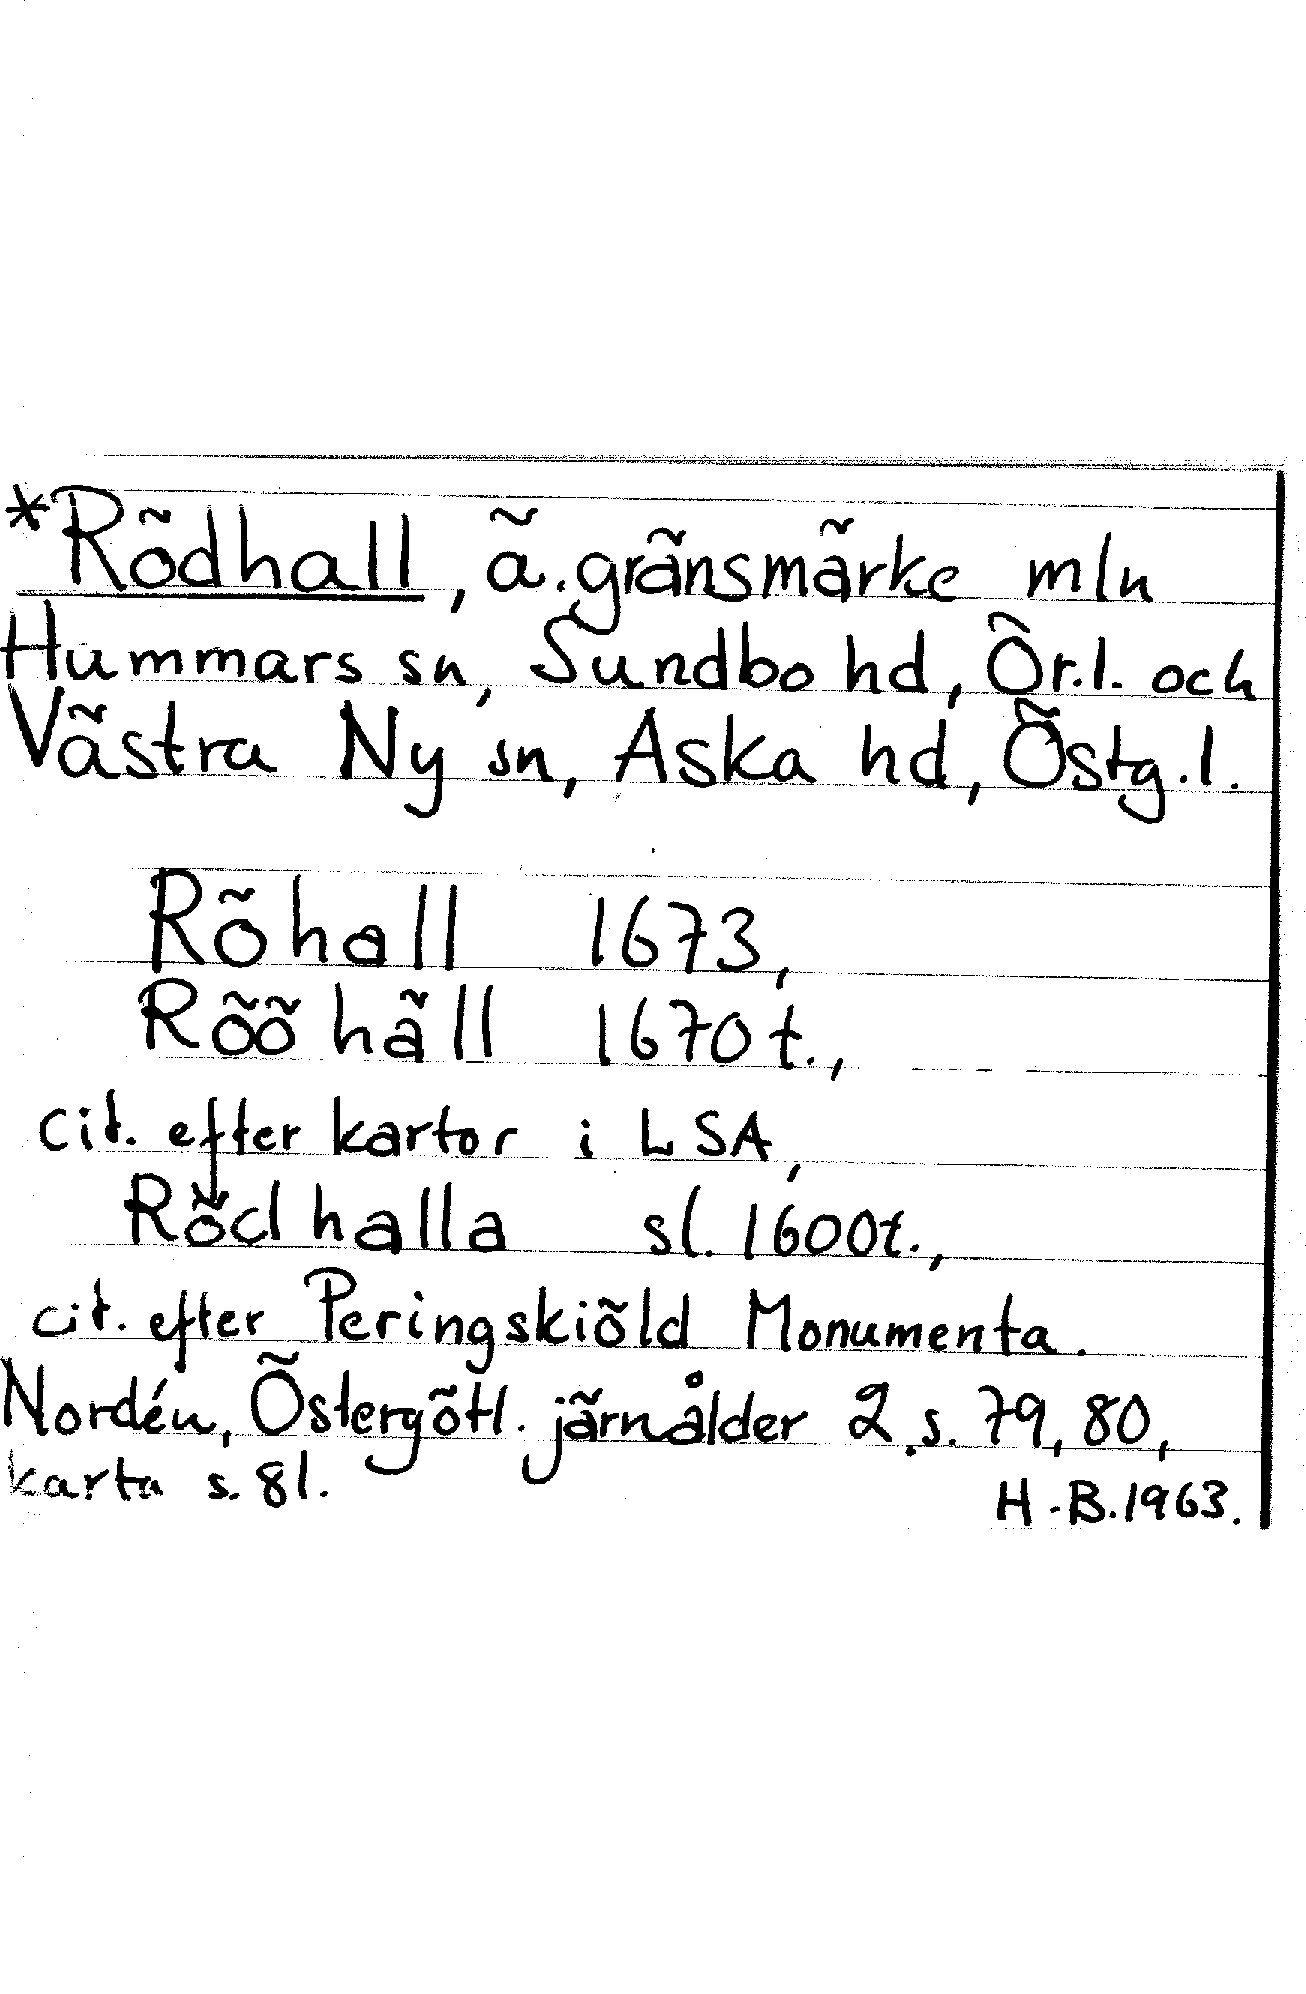 *Rödhall, ä. gränsmärke mln
Hummars sn, Sundbo hd, Ör.l. och
Västra Ny sn, Aska hd, Östg.l.
Röhall 1673,
Rööhäll 1670t.,
cit. efter kartor i LSA,
Rödhalla sl. 1600t.,
cit. efter Peringskiöld Monumenta.
Nordén, Östergötl. järnålder 2 s. 79, 80,
karta s. 81.
H-B. 1963.